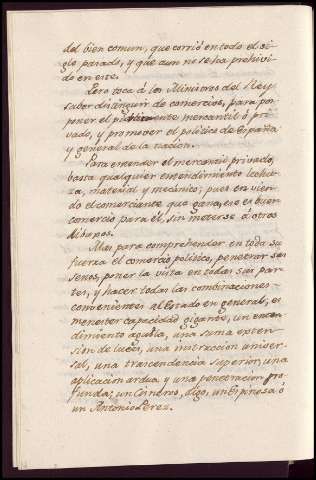 del bien comun, que corrió en todo el si-
glo pasado, y que aun no se ha prohivi-
do en este.
Pero toca á los Ministros del Rey
saber distinguir de comercios, para pos-
poner el puramente mercantil ó pri-
vado, y promover el politico de España
y general de la nacion.
Para entender el mercancio privado,
basta qualquier entendimiento
material y mecanico; pues en vien-
do el comerciante que gana, ese es buen
comercio para él, sin meterse á otros
Mas para comprehender en toda su
fuerza el comercio politico, penetrar sus
senos, poner la vista en todas sus par-
tes, y hacer todas las combinaciones
convenientes al Estado en general, es
menester capacidad gigante, un enten-
dimiento aguila, una suma exten-
sion de luces, una instruccion univer-
sal, una trascendencia superior, una
aplicacion ardua y una penetracion pro-
funda; un Cisneros, digo, un Espinosa ó
un Antonio Perez.